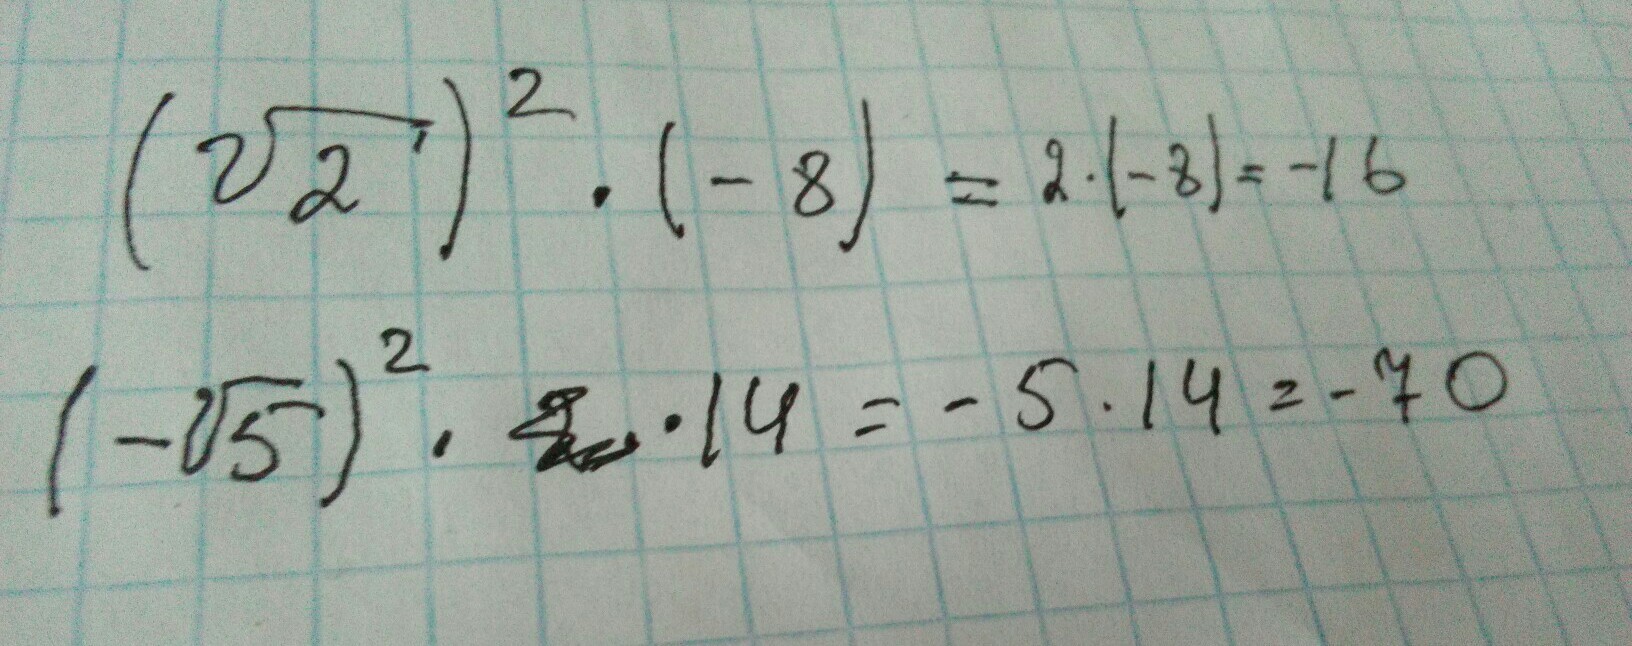 (√2)² · (-8) = 2·(-8) = -16
(-√5)² · · 14 = -5·14 = -70